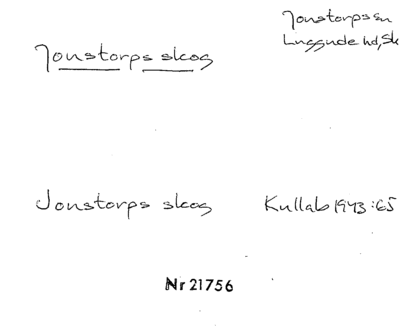 Jonstorps skog
Jonstorps sn
Luggude hd, Sk
Jonstorps skog
Kullab 1943:65
Nr 21756